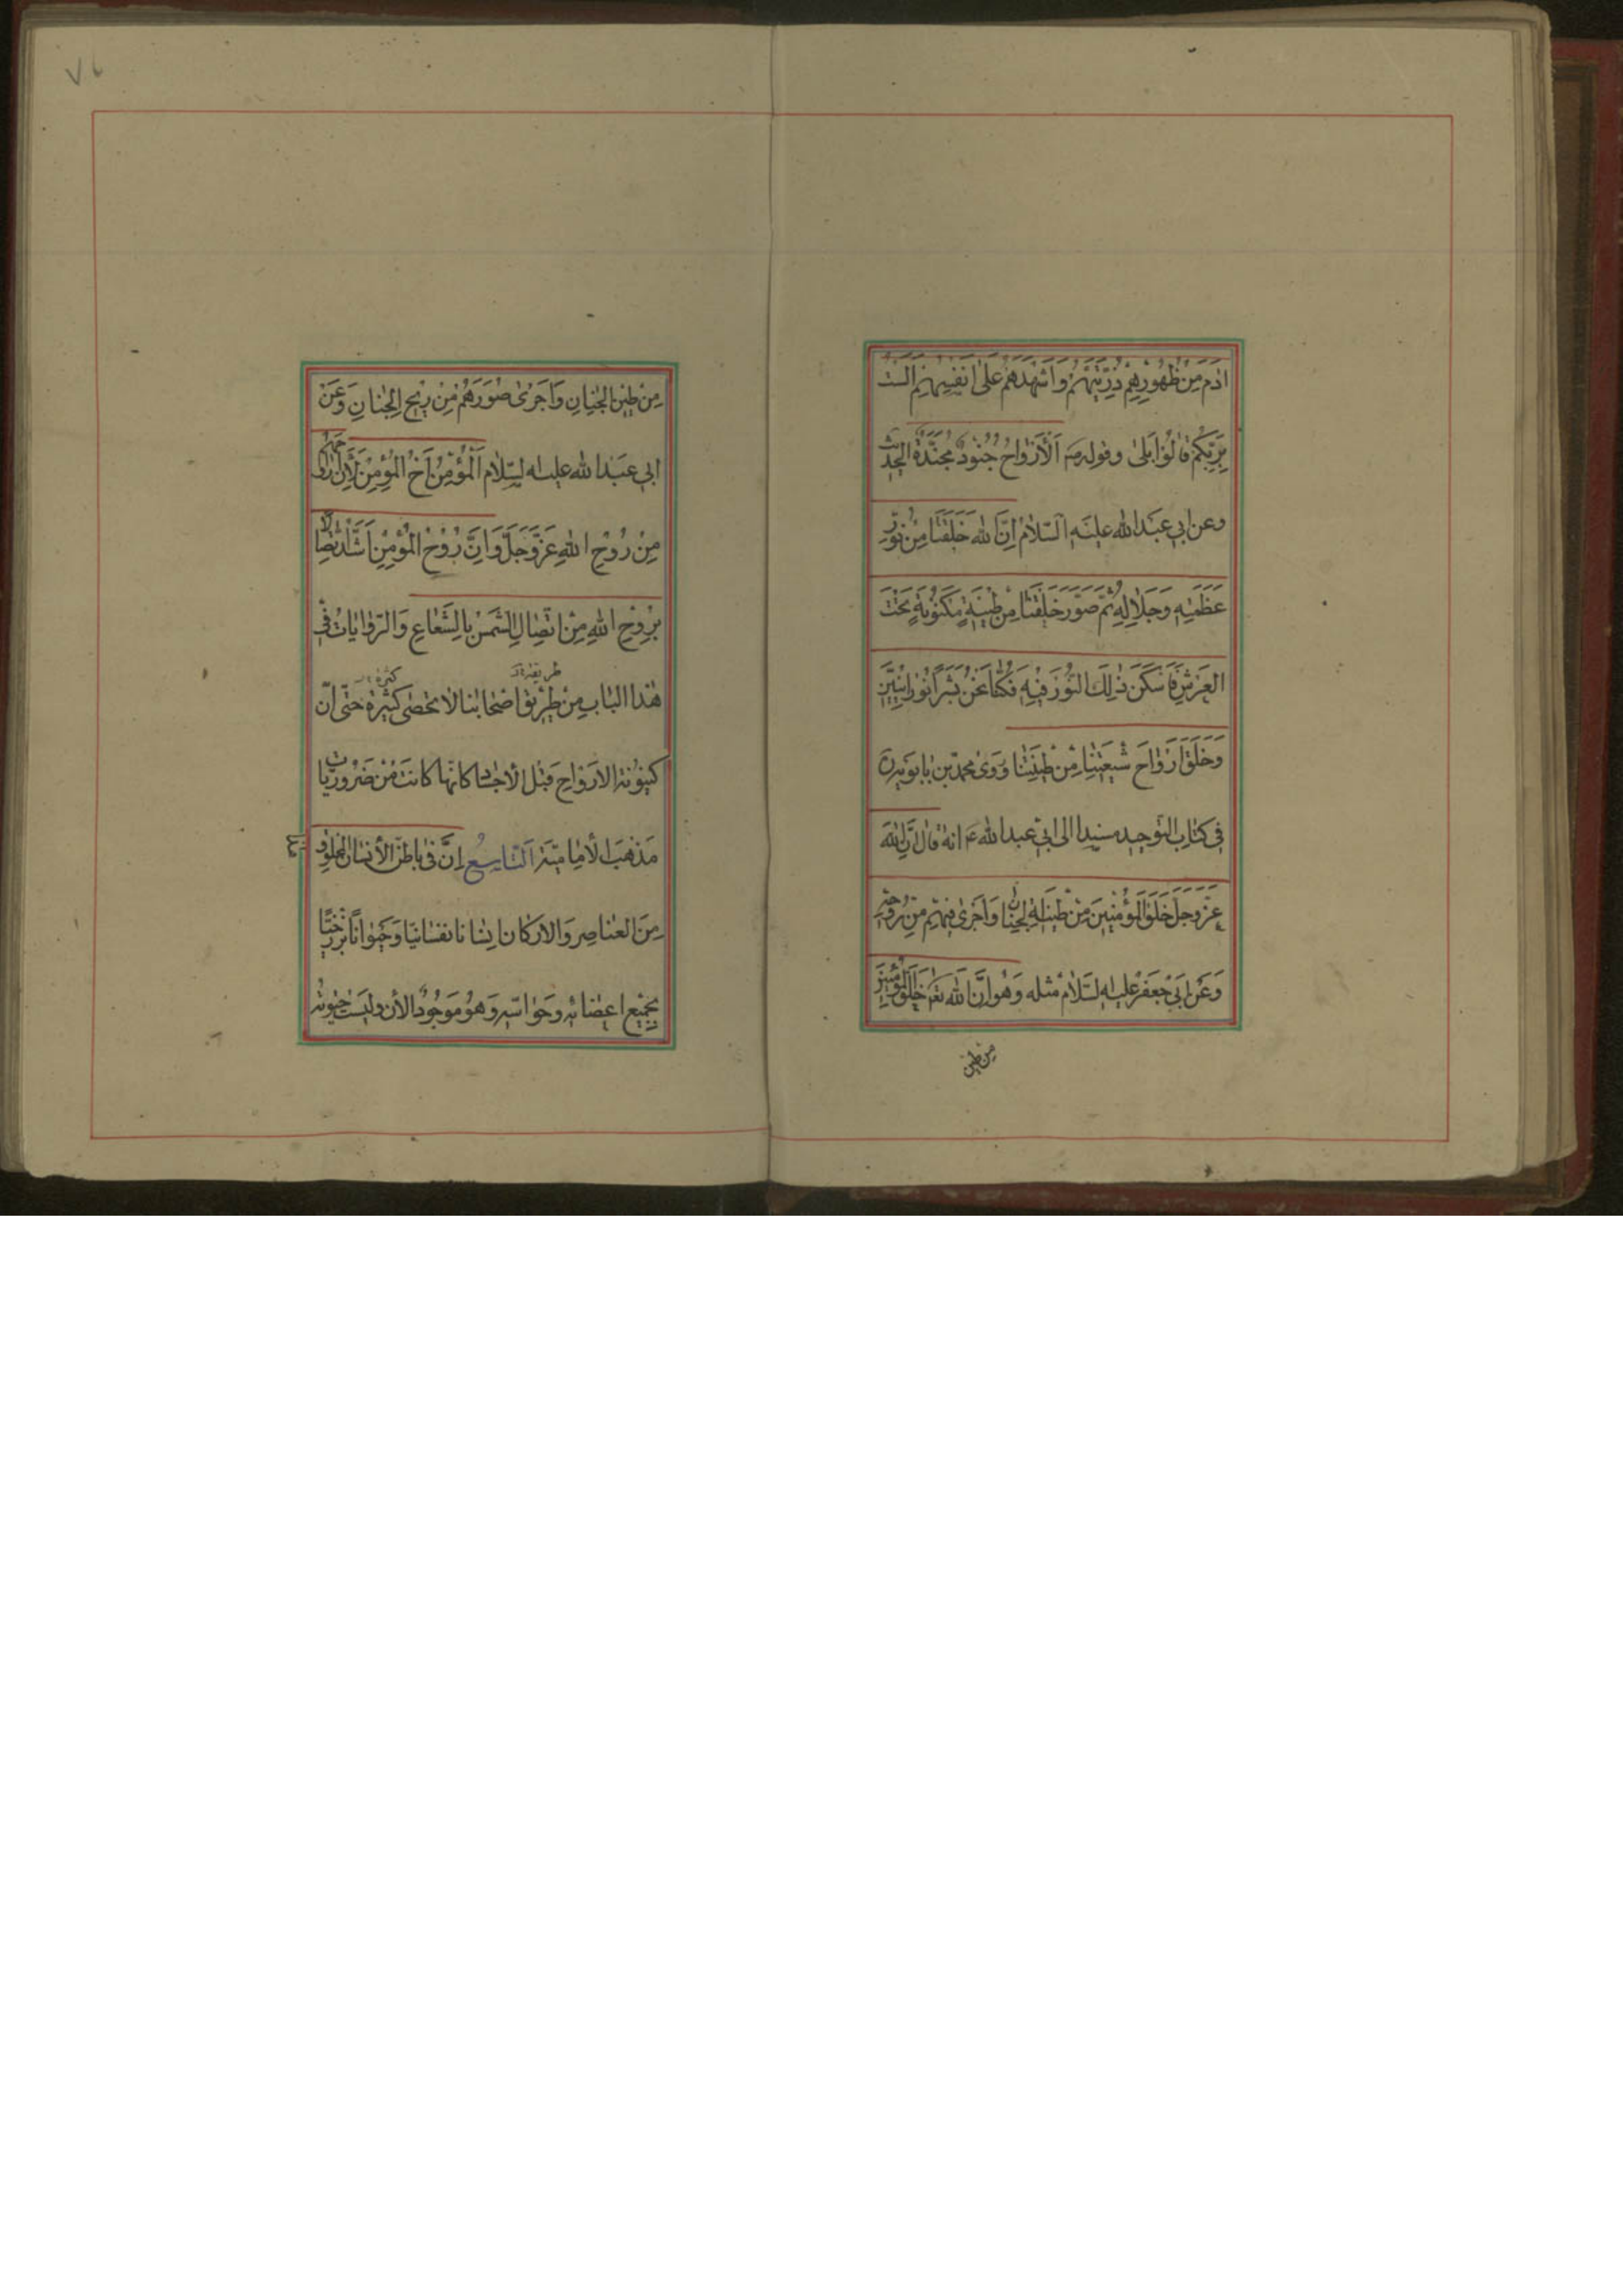 ادَمَ مِنْ ظُهُورِهِمْ ذُرِّيَّتَهُمْ وَاَشْهَدَهُمْ عَلٰى اَنْفُسِهِمْ اَلَسْتُ
بِرَبِّكُمْ قٰالُوْا بَلٰى وقوله ص اَلْأَرْوٰاحُ جُنُودٌ مُجَنَّدَةٌ الحديث
وعن ابي عَبْدالله عليْه السّلام اِنَّ الله خَلَقَنٰا مِنْ نُوْرِ
عَظَمَتِهِ وَجَلالِهِ ثُمَّ صَوَّرَ خَلْقَنٰا مِنْ طِيْنَةٍ مَكْنُونَةٍ تَحْتَ
العَرْشِ فَاَسْكَنَ ذٰلِكَ النُّوْرَ فِيْهِ فَكُنّٰا نَحْنُ بَشَرًا نُوْرٰانِيّينَ
وَخَلَقَ اَرْوٰاحَ شِيْعَتِنٰا مِنْ طِيْنَتِنٰا وَرَوى محمّد بن بابويه ره
فى كتاب التّوحيد مسندا الى ابي عبد الله ع انه قال اِنَّ اللّهَ
عَزّ وَجَلّ خَلَقَ الْمُؤْمِنِيْنَ مِنْ طِيْنَةِ الْجِنٰانِ وَاَجْرىٰ فِيْهِمْ مِنْ رُوْحِهِ
وَعَنْ ابى جَعْفَر عليه السّلام مثله وَهُوَ انَّ الله تعٰ خَلَقَ الْمُؤْمِنِيْنَ
من طين
مِنْ طِيْنِ الْجِنٰانِ وَاَجْرىٰ صُوَرَهُمْ مِنْ رِيْحِ الْجِنٰانِ وَعَنْ
ابى عَبْدالله عليه السّلام اَلْمُؤْمِنُ اَخُ الْمُؤْمِنِ لِاَنَّ اَرْوٰاحَهُمْ
مِنْ رُوْحِ اللهِ عَزَّ وَجَلَّ وَاِنَّ رُوْحَ الْمُؤْمِنِ اَشَدُّ اتِّصٰالًا
بِرُوْحِ اللهِ مِنْ اتِّصٰالِ الشَّمْسِ بِالشُّعٰاعِ وَالرِّوٰايٰاتُ فى
طريقة كثرة
هٰذا البٰابِ مِنْ طَرِيْق اَصْحٰابِنٰا لا تحصٰى كَثِيْرَة حَتّى اَنّ
كينُونَة الارَوٰاحِ قَبْل الأَجْسٰاد كانّهٰا كانَتْ مِنْ ضَرُورِيّات
مَذْهَبِ الأمٰامِيَّة اَلتّاسِعُ اِنَّ فى بٰاطن الأنسٰان المخلوق
مِنَ العَنٰاصِر وَالاركٰان انِسٰانا نفسٰانيّا وَحَيَوٰانًا بَرْزَخِيًّا
بِجَمِيْع اَعْضٰائِه وَحَوٰاسّه وَهُوَ مَوْجُودٌ الأن وَلَيْسَتْ حَيٰوتُه